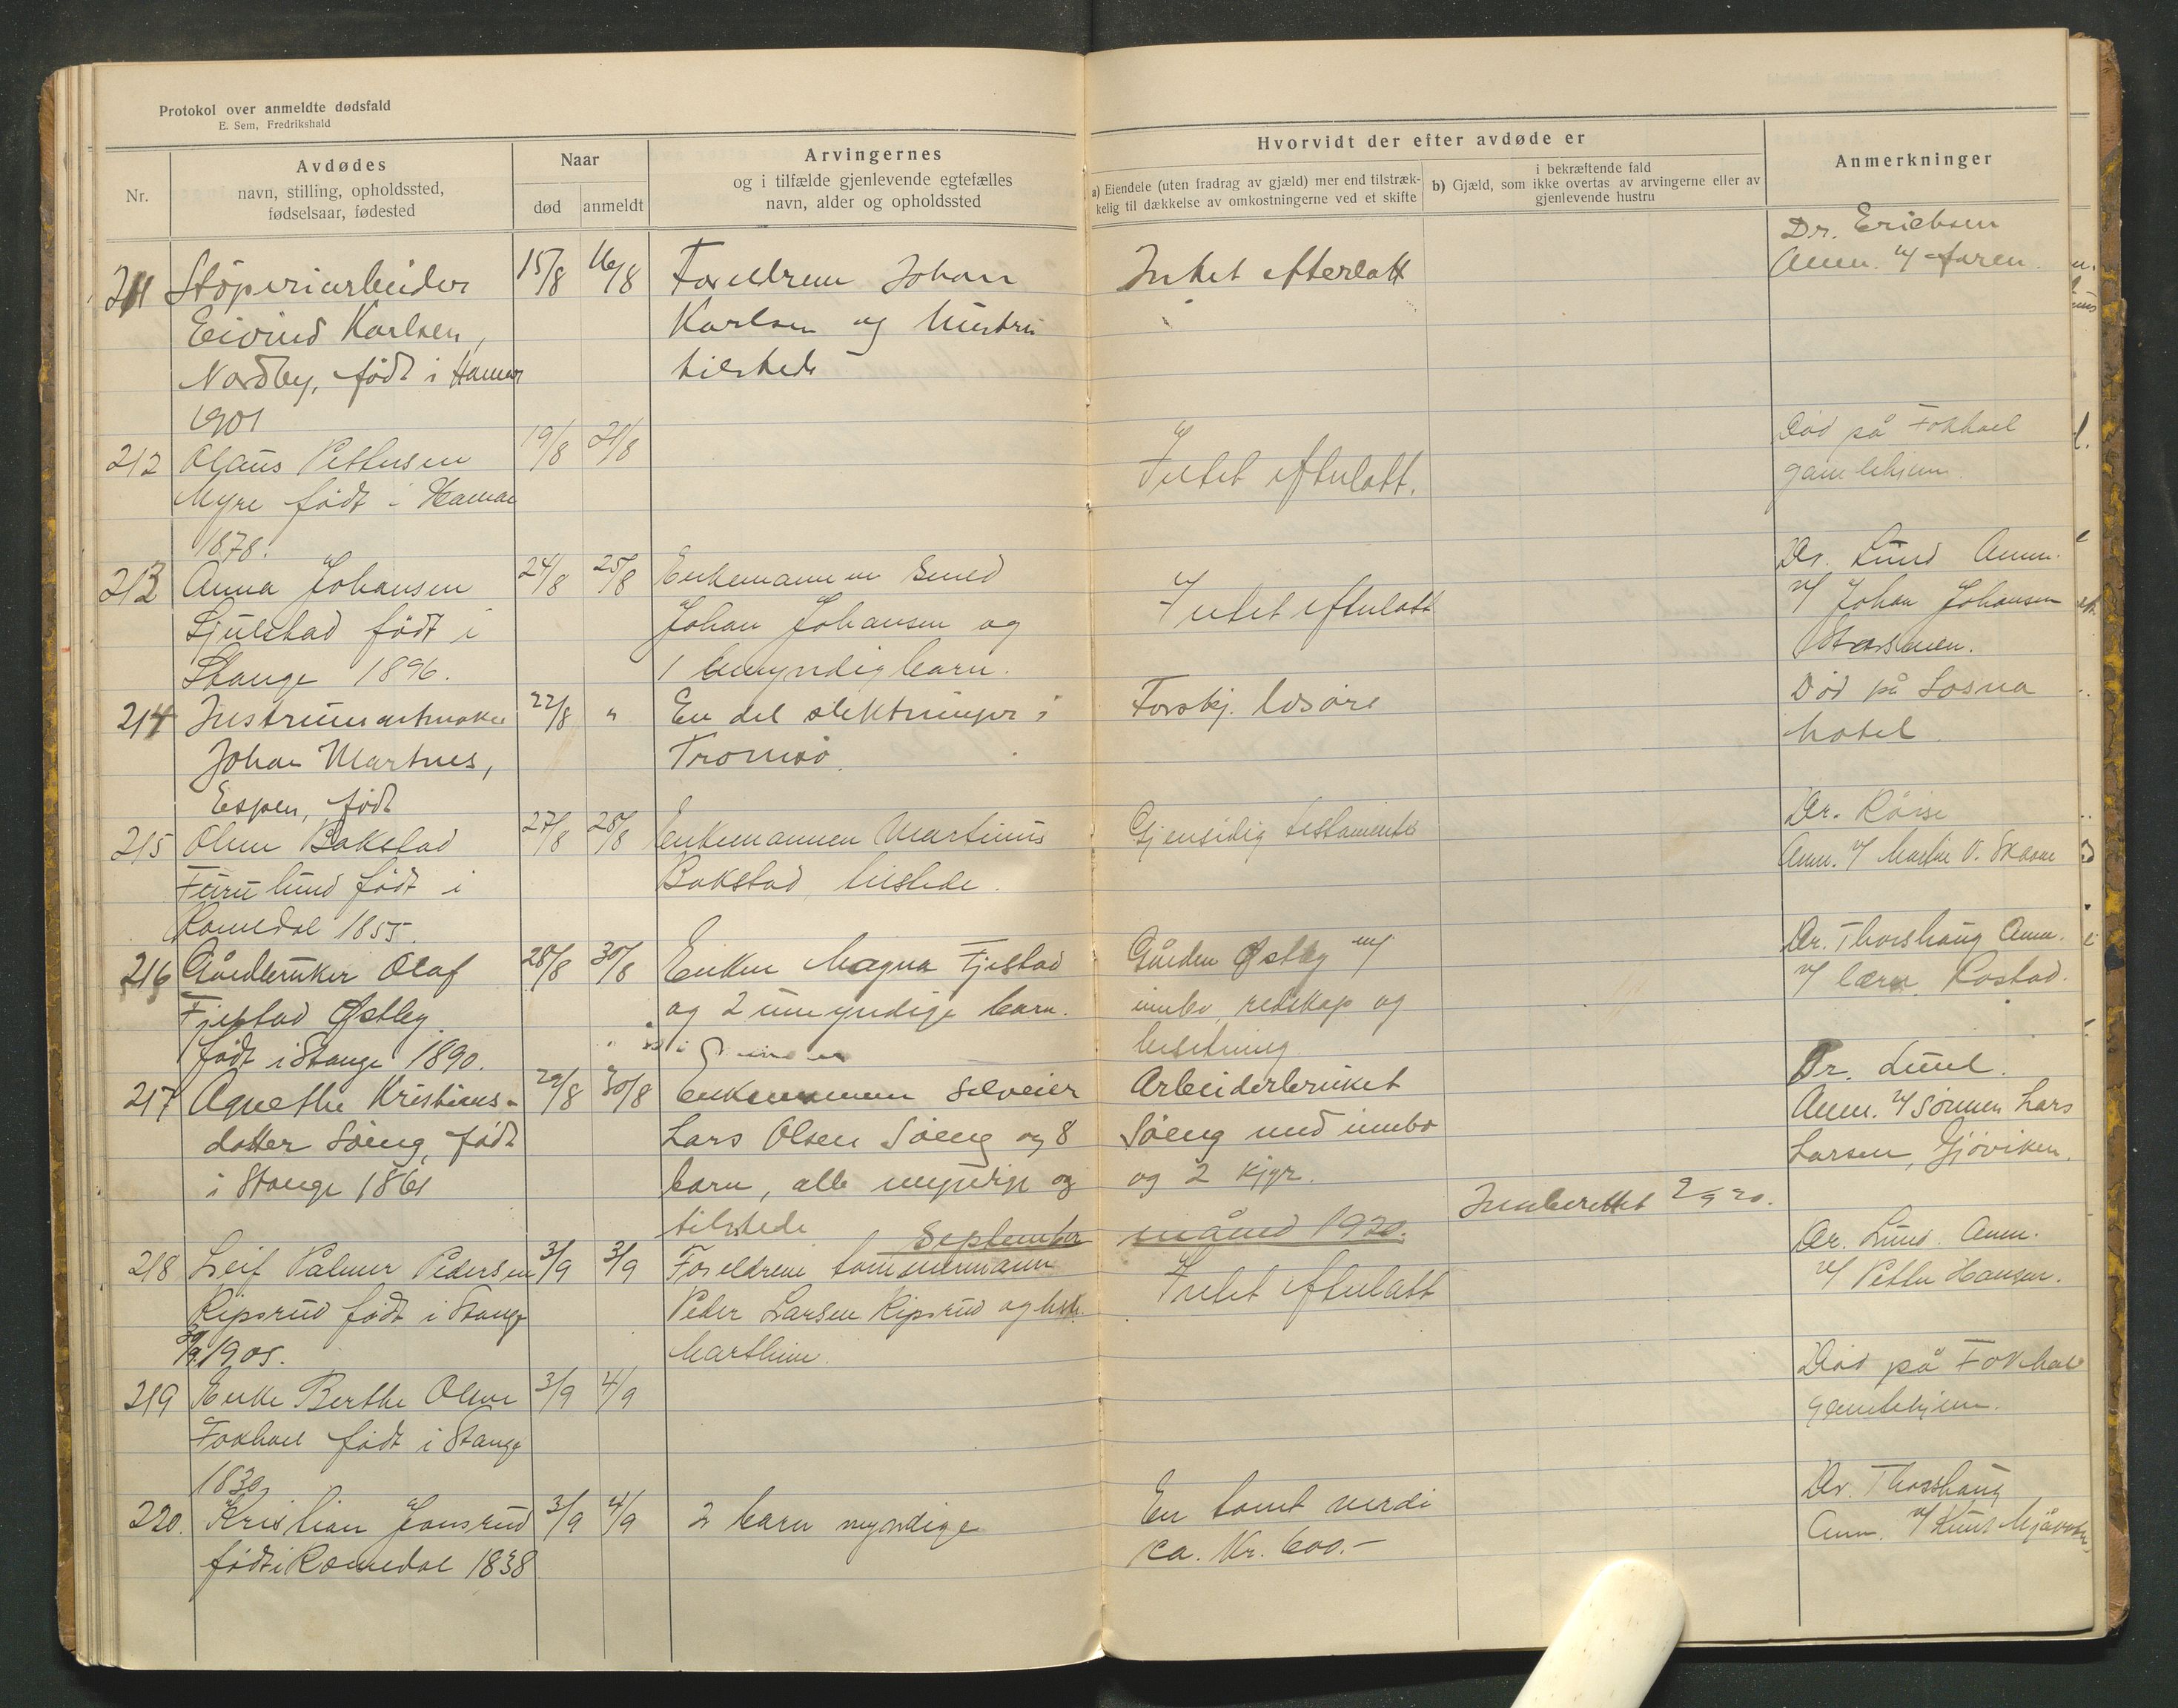 Protokol over anmeldte dødsfald
E. Sem, Fredrikshald
Nr.
Avdødes
navn, stilling, opholdssted,
fødselsaar, fødested
Naar
død
anmeldt
Arvingernes
og i tilfælde gjenlevende egtefælles
navn, alder og opholdssted
Hvorvidt der efter avdøde er
a) Eiendele (uten fradrag av gjæld) mer end tilstræk-
kelig til dækkelse av omkostningerne ved et skifte
i bekræftende fald
b) Gjæld, som ikke overtas av arvingerne eller av
gjenlevende hustru
Anmerkninger
211 Støperiarbeider 15/8 16/8 Foreldrene Johan Intet efterlatt Dr. Erichsen
Eivind Karlsen, Karlsen og hustru Anm. v/ faren.
Nordby, født i Hamar tilstede
1901
212 Olaus Pettersen 19/8 21/8 Intet efterlatt. Død på Fokhol
Myre født i Hamar gamlehjem.
1878.
213 Anna Johansen 24/8 25/8 Enkemannen Smed Intet efterlatt Dr. Lund Anm.
Gjulstad født i Johan Johansen og v/ Johan Johansen
Stange 1896. 1 umyndig barn.
214 Instrumentmaker 22/8 " En del slektninger i Forskj. løsøre Død på Losna
Johan Martnes, Tromsø. hotel.
Espen, født
215 Oline Bakstad 27/8 28/8 Enkemannen Martinus Gjensidig testamente Dr. Röise
Furulund født i Bakstad, tilstede. Anm. v/
Romedal 1855.
216 Gårdbruker Olaf 28/8 30/8 Enken Magna Fjestad Gården Østby m/ Dr. Thorshaug Anm.
Fjestad Østby og 2 umyndige barn. innbo, redskap og v/ lærer Rostad.
født i Stange 1890. besetning
217 Agnethe Kristians- 29/8 30/8 Enkemannen Selveier Arbeiderbruket Dr. Lund.
datter Söeng, født Lars Olsen Söeng og 8 Söeng med innbo Anm. v/ sönnen Lars
i Stange 1861 barn, alle myndige og og 2 kjyr. Larsen, Gjöviken.
tilstede Innberettet 2/9 20.
September måned 1920.
218 Leif Palmer Pedersen 3/9 3/9 Foreldrene tømmermann Intet efterlatt Dr. Lund. Anm.
Ripsrud født i Stange Peder Larsen Ripsrud og hstr. v/ Petter Hansen.
1905. Marthine.
219 Enke Berthe Olsen 3/9 4/9 Død på Fokhol
Fokhol født i Stange gamlehjem.
1830.
220. Kristian Jønsrud 3/9 4/9 2 barn myndige En tomt verdi Dr. Thorshaug
født i Romedal 1838 ca. Kr. 600.- Anm. v/ Knut